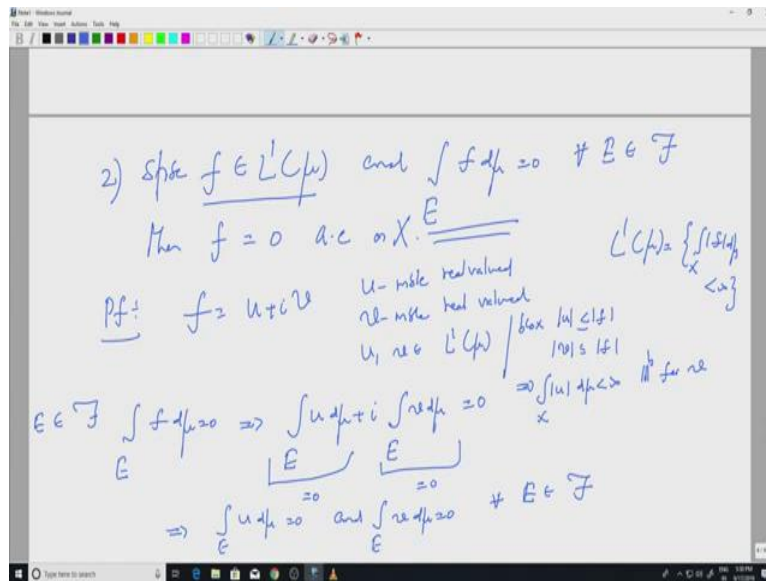 Note1 - Windows Journal
File Edit View Insert Actions Tools Help
2) Spse f ∈ L¹(μ) and ∫_E f dμ = 0 ∀ E ∈ ℱ
Then f = 0 a.e on X.
L¹(μ) = { ∫_X |f| dμ < ∞ }
Pf: f = u + i v
u - mble real valued
v - mble real valued
u, v ∈ L¹(μ) | bcox |u| ≤ |f|
|v| ≤ |f|
⇒ ∫_X |u| dμ < ∞ |||ly for v
E ∈ ℱ ∫_E f dμ = 0 ⇒ ∫_E u dμ + i ∫_E v dμ = 0
= 0 = 0
⇒ ∫_E u dμ = 0 and ∫_E v dμ = 0 ∀ E ∈ ℱ
Type here to search